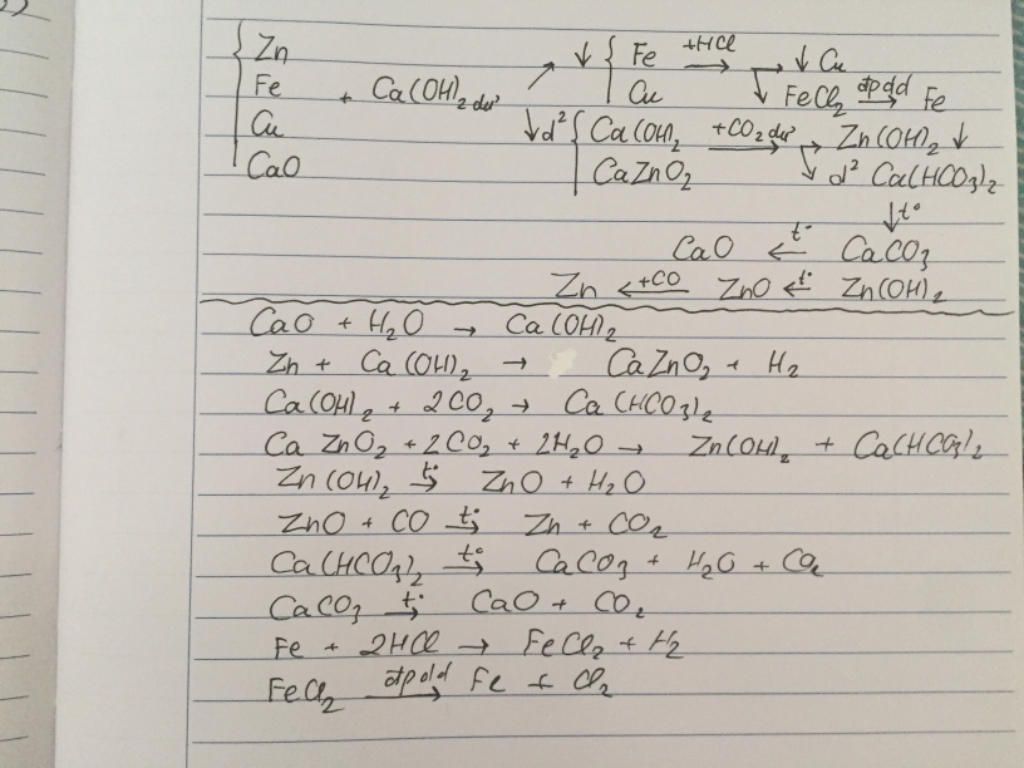 Zn
Fe + Ca(OH)₂ dư ↗ ↓ { Fe +HCl → → ↓ Cu
Cu ↓ FeCl₂ đpdd → Fe
Cu ↓ d² { Ca(OH)₂ +CO₂ dư → → Zn(OH)₂ ↓
CaO CaZnO₂ ↘ d² Ca(HCO₃)₂
↓ t°
CaO ← t° CaCO₃
Zn ← +CO ZnO ← t° Zn(OH)₂
CaO + H₂O → Ca(OH)₂
Zn + Ca(OH)₂ → CaZnO₂ + H₂
Ca(OH)₂ + 2CO₂ → Ca(HCO₃)₂
CaZnO₂ + 2CO₂ + 2H₂O → Zn(OH)₂ + Ca(HCO₃)₂
Zn(OH)₂ t° → ZnO + H₂O
ZnO + CO t° → Zn + CO₂
Ca(HCO₃)₂ t° → CaCO₃ + H₂O + CO₂
CaCO₃ t° → CaO + CO₂
Fe + 2HCl → FeCl₂ + H₂
FeCl₂ đpdd → Fe + Cl₂